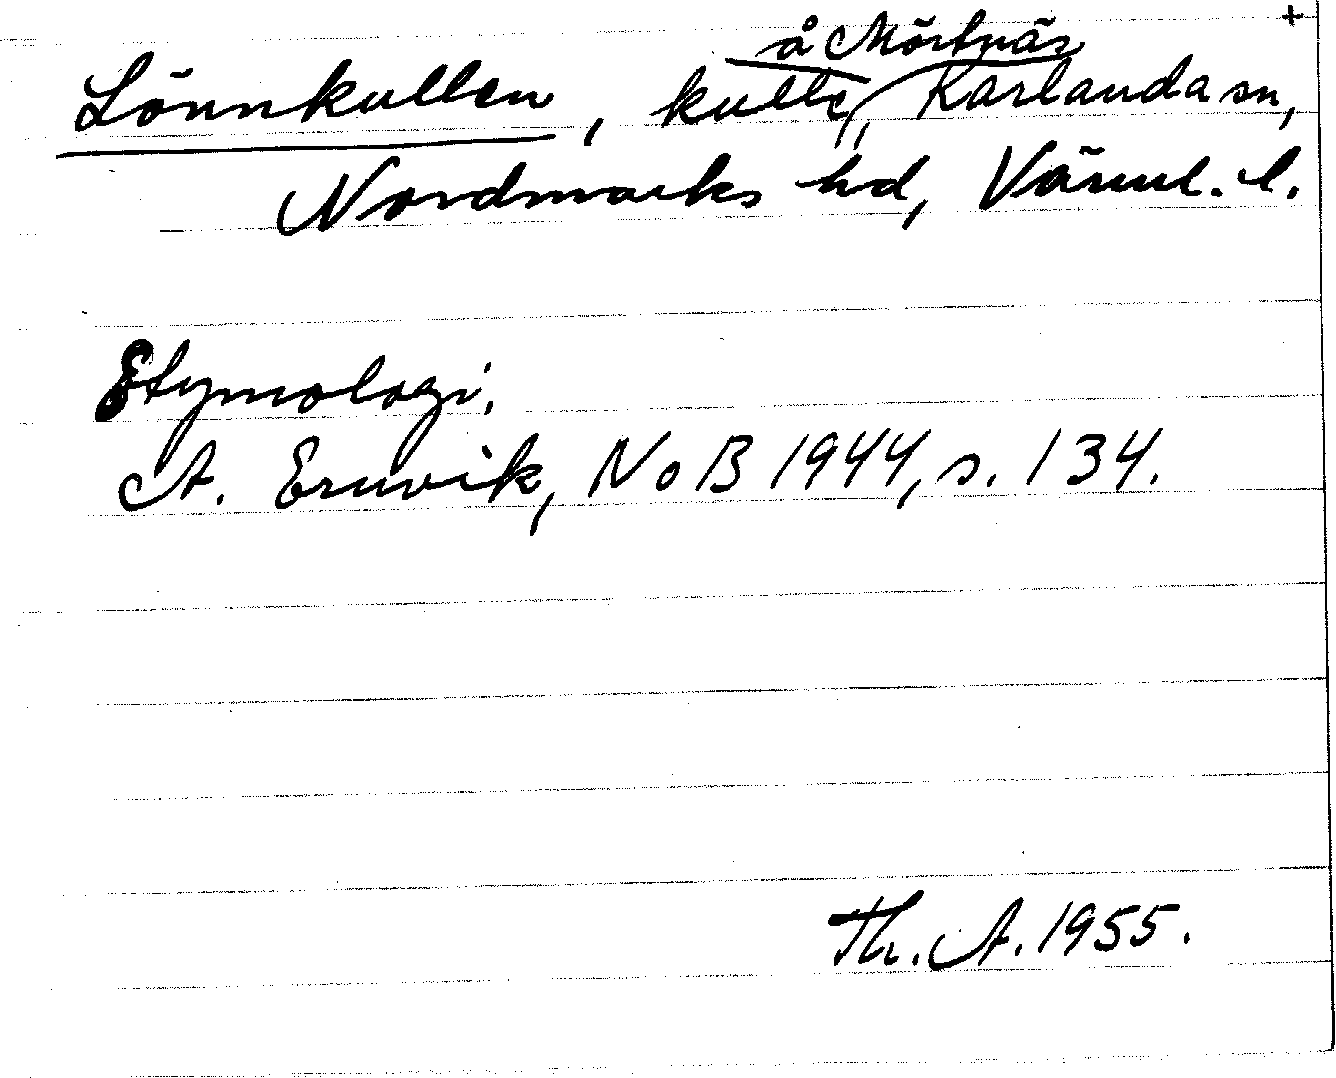 +
å Mörtnäs
Lönnkullen, kulle, Karlanda sn,
Nordmarks hd, Värml. l.
Etymologi.
A. Ernvik, NoB 1944, s. 134.
Th. A. 1955.